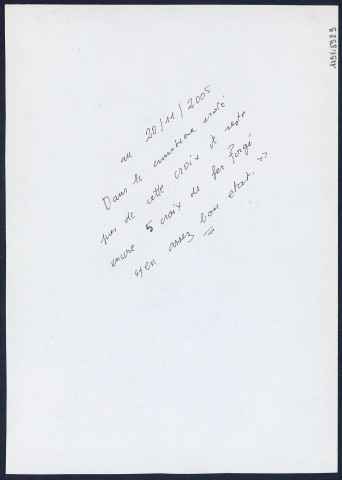 au 20/11/2005
Dans le cimetière situé
près de cette croix il reste
encore 5 croix de fer forgé
"en assez bon état."